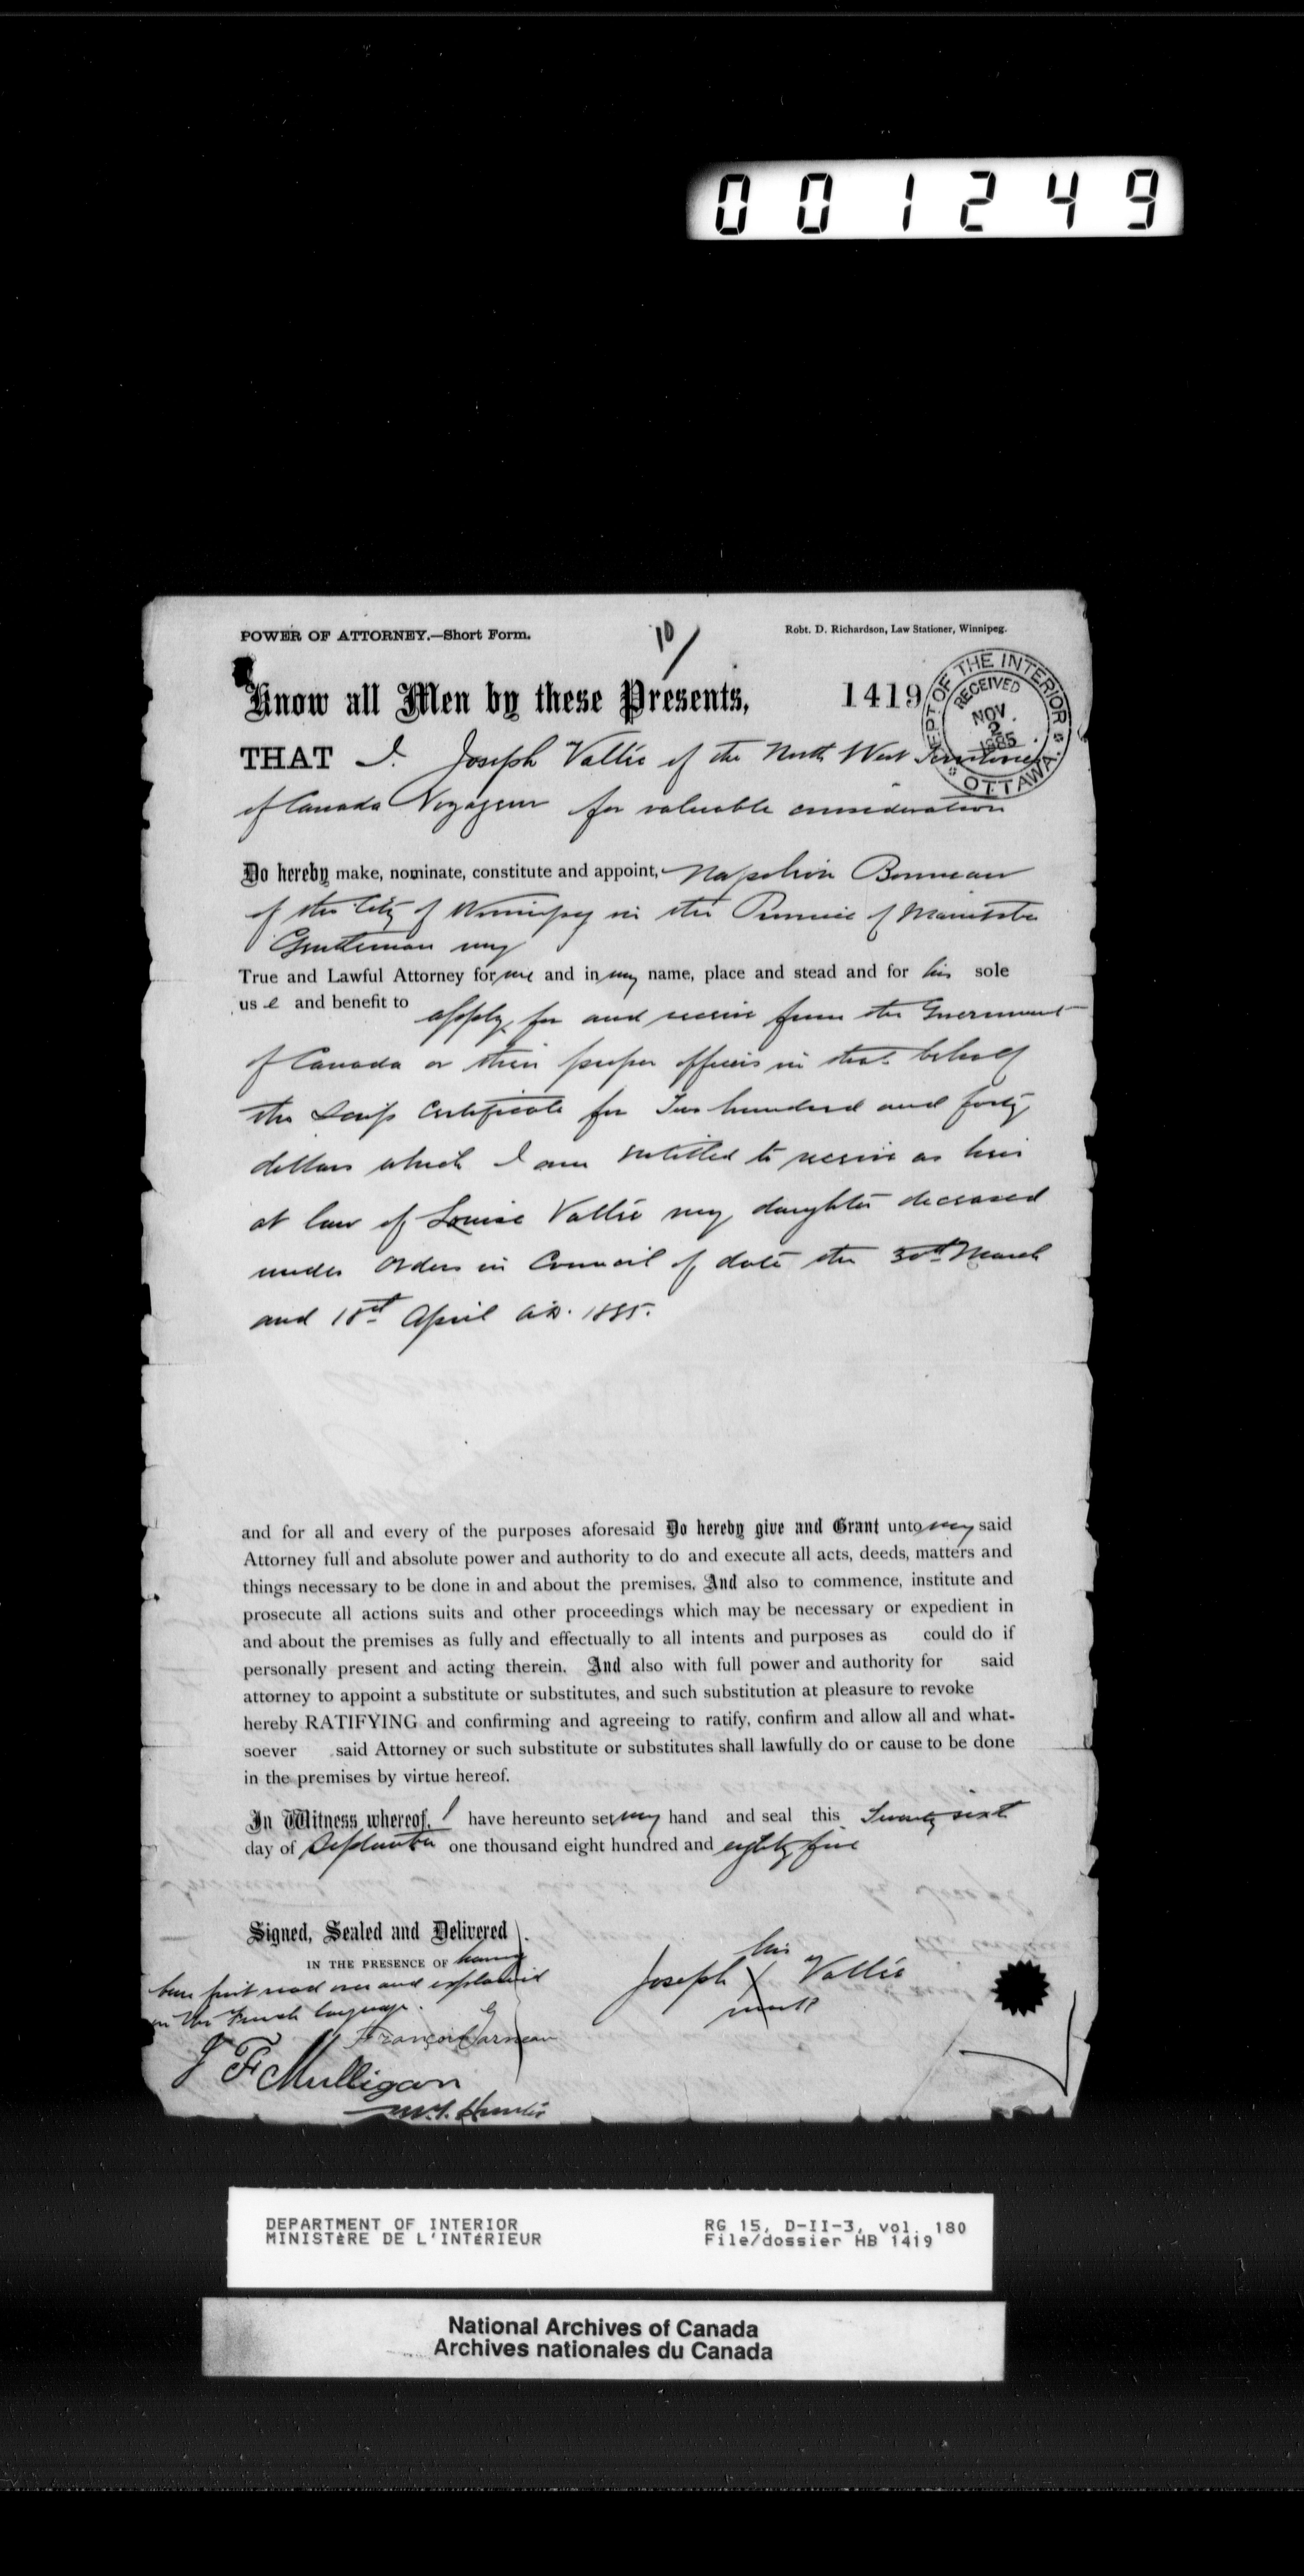 001249
POWER OF ATTORNEY.—Short Form.
10/
Robt. D. Richardson, Law Stationer, Winnipeg.
Know all Men by these Presents,
1419
DEPT OF THE INTERIOR
RECEIVED
NOV. 2 1885
OTTAWA.
THAT I. Joseph Vallie of the North West Territories
of Canada Voyageur for valuable consideration
Do hereby make, nominate, constitute and appoint, Napoleon Bonneau
of the City of Winnipeg in the Province of Manitoba
Gentleman my
True and Lawful Attorney for me and in my name, place and stead and for his sole
use and benefit to apply for and receive from the Government
of Canada or their proper officers in that behalf
the Scrip Certificate for Two hundred and forty
dollars which I am entitled to receive as heir
at law of Louise Vallie my daughter deceased
under Orders in Council of date the 30th March
and 18th April A.D. 1885.
and for all and every of the purposes aforesaid Do hereby give and Grant unto my said
Attorney full and absolute power and authority to do and execute all acts, deeds, matters and
things necessary to be done in and about the premises, And also to commence, institute and
prosecute all actions suits and other proceedings which may be necessary or expedient in
and about the premises as fully and effectually to all intents and purposes as could do if
personally present and acting therein. And also with full power and authority for said
attorney to appoint a substitute or substitutes, and such substitution at pleasure to revoke
hereby RATIFYING and confirming and agreeing to ratify, confirm and allow all and what-
soever said Attorney or such substitute or substitutes shall lawfully do or cause to be done
in the premises by virtue hereof.
In Witness whereof, I have hereunto set my hand and seal this Twenty sixth
day of September one thousand eight hundred and eighty five
Signed, Sealed and Delivered
IN THE PRESENCE OF having
been first read over and explained
in the French language.
Francois Garneau
J F Mulligan
Hunter
his
Joseph X Vallie
mark
DEPARTMENT OF INTERIOR
MINISTÈRE DE L'INTÉRIEUR
RG 15, D-II-3, vol. 180
File/dossier HB 1419
National Archives of Canada
Archives nationales du Canada